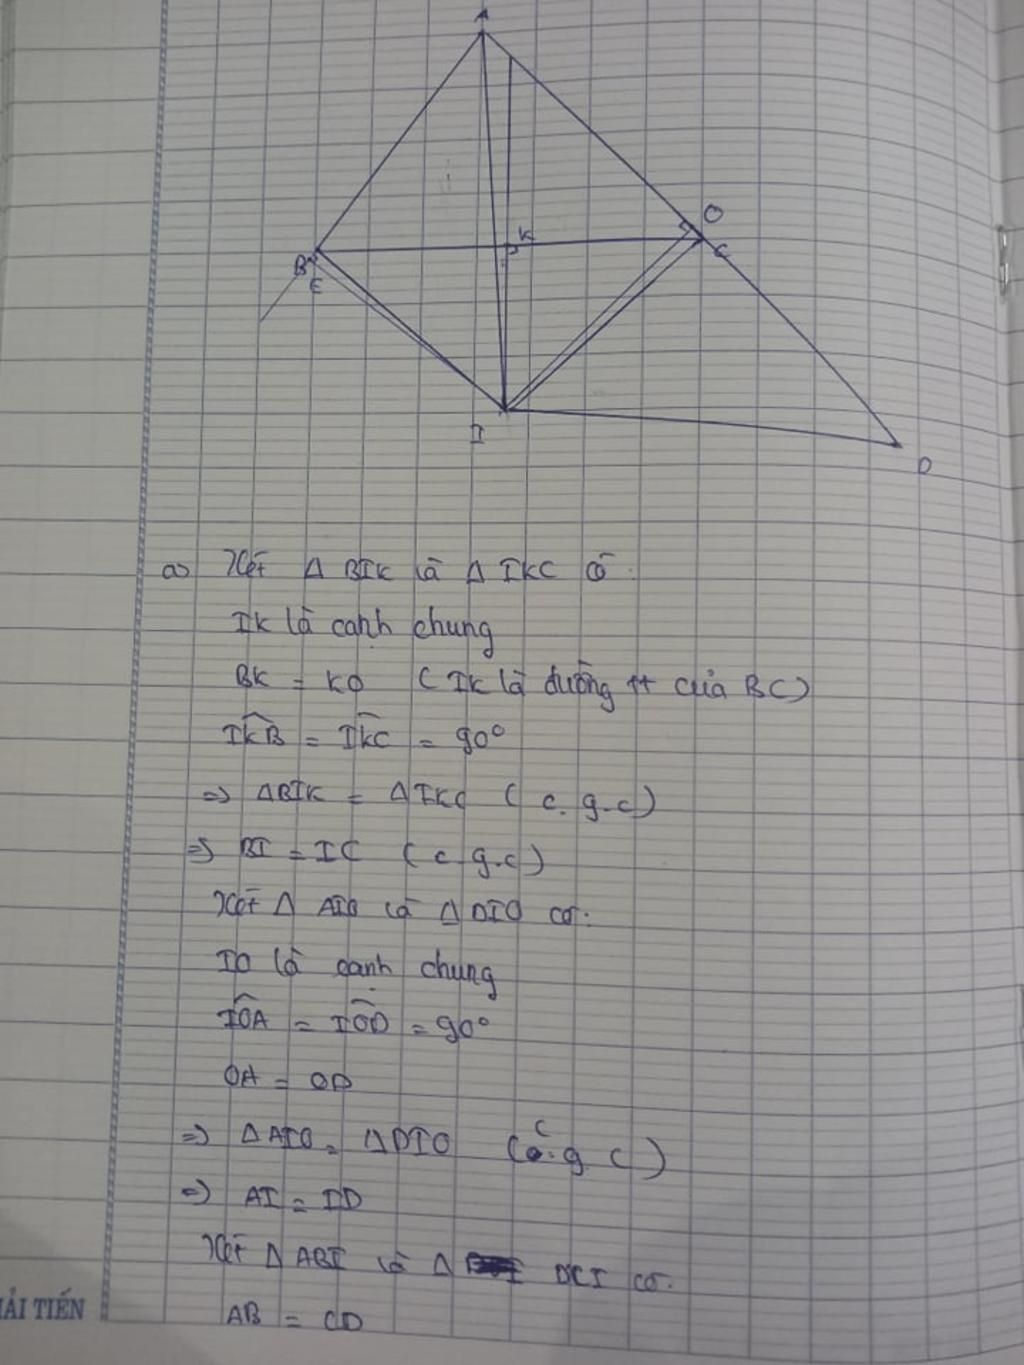 A
O
B
K
C
E
I
D
a) Xét Δ BIK và Δ IKC có:
IK là cạnh chung
BK = KC ( IK là đường tt của BC)
IKB = IKC = 90°
=> ΔBIK = ΔIKC ( c. g. c)
=> BI = IC ( c. g. c)
Xét Δ AIO và Δ DIO có:
IO là cạnh chung
IOA = IOD = 90°
OA = OD
=> ΔAIO = ΔDIO ( c. g. c )
=> AI = ID
Xét Δ ABI và Δ DCI có:
AB = CD
ẢI TIẾN